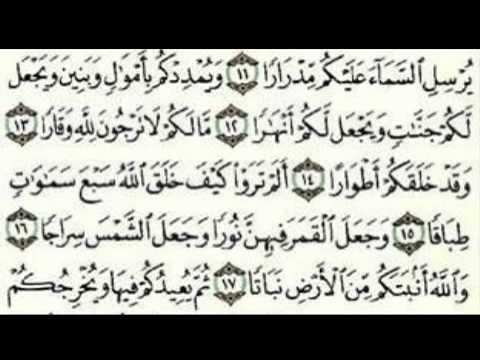 يُرْسِلِ ٱلسَّمَآءَ عَلَيْكُم مِّدْرَارًا ١١ وَيُمْدِدْكُم بِأَمْوَٰلٍ وَبَنِينَ وَيَجْعَل
لَّكُمْ جَنَّٰتٍ وَيَجْعَل لَّكُمْ أَنْهَٰرًا ١٢ مَّا لَكُمْ لَا تَرْجُونَ لِلَّهِ وَقَارًا ١٣
وَقَدْ خَلَقَكُمْ أَطْوَارًا ١٤ أَلَمْ تَرَوْا۟ كَيْفَ خَلَقَ ٱللَّهُ سَبْعَ سَمَٰوَٰتٍ
طِبَاقًا ١٥ وَجَعَلَ ٱلْقَمَرَ فِيهِنَّ نُورًا وَجَعَلَ ٱلشَّمْسَ سِرَاجًا ١٦
وَٱللَّهُ أَنۢبَتَكُم مِّنَ ٱلْأَرْضِ نَبَاتًا ١٧ ثُمَّ يُعِيدُكُمْ فِيهَا وَيُخْرِجُكُمْ